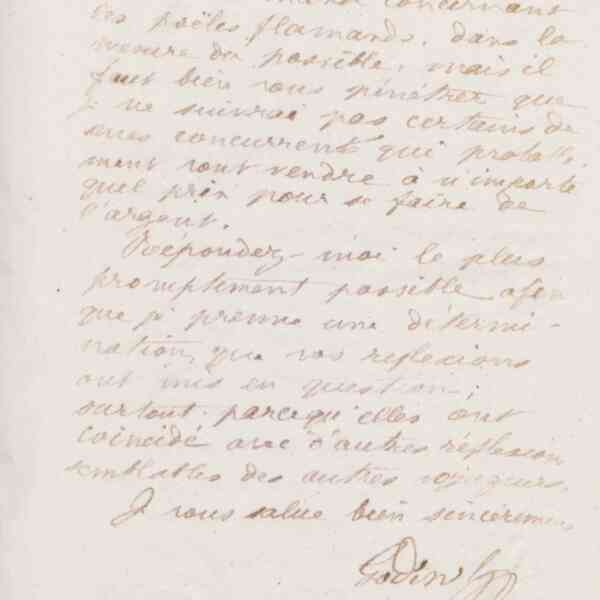 concernant
les poëles flamands. dans la
mesure du possible, mais il
faut bien vous pénétrer que
je ne suivrai pas certains de
mes concurrents qui probable
ment vont vendre à n'importe
quel prix pour se faire de
l'argent.
Répondez-moi le plus
promptement possible afin
que je prenne une détermi-
nation que vos reflexions
ont mis en question;
surtout parcequ'elles ont
coïncidé avec d'autres réflexions
semblables des autres voyageurs.
Je vous salue bien sincèrement
Godin